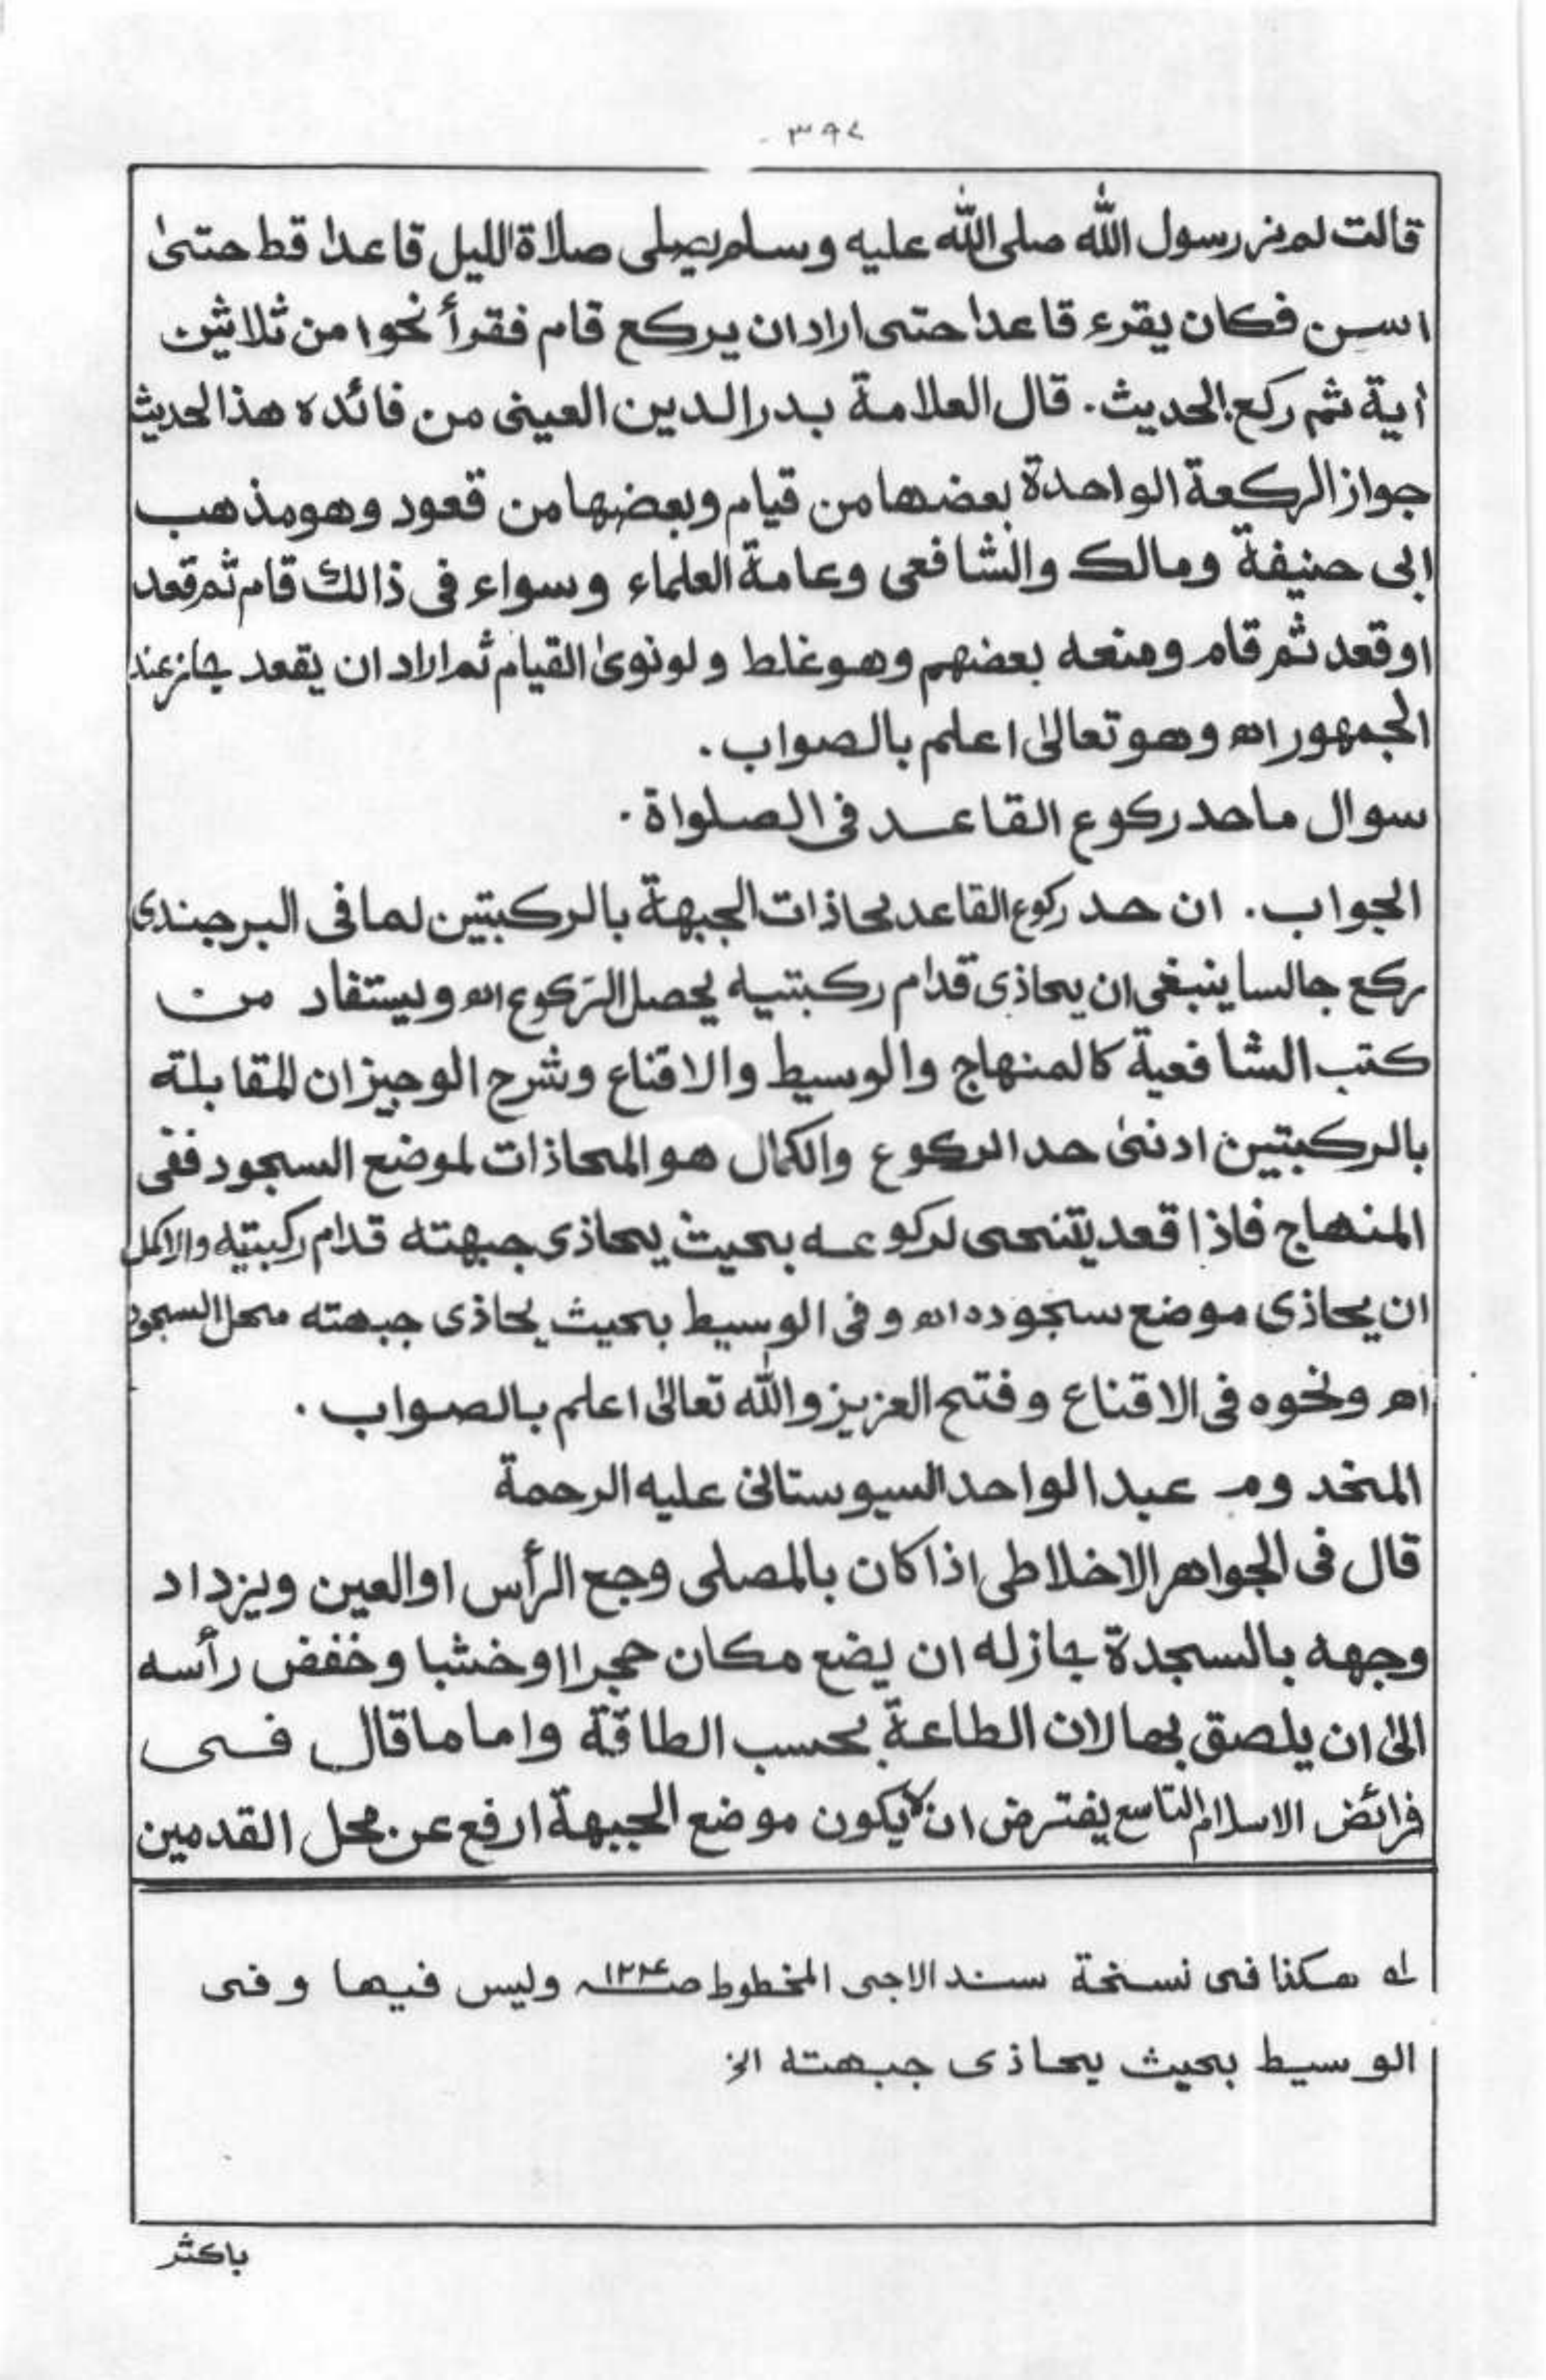 ٣٩٧
قالت لم نر رسول الله صلى الله عليه وسلم يصلى صلاة الليل قاعدا قط حتىٰ
اسن فكان يقرء قاعدا حتى اراد ان يركع قام فقرأ نحوا من ثلاثين
أية ثم ركع الحديث. قال العلامة بدر الدين العينى من فائده هذا الحديث
جواز الركعة الواحدة بعضها من قيام وبعضها من قعود وهو مذهب
ابى حنيفة ومالك والشافعى وعامة العلماء وسواء فى ذالك قام ثم قعد
او قعد ثم قام ومنعه بعضهم وهو غلط ولو نوىٰ القيام ثم اراد ان يقعد جاز عند
الجمهور اه وهو تعالىٰ اعلم بالصواب.
سوال ما حد ركوع القاعد فى الصلواة.
الجواب. ان حد ركوع القاعد بحاذات الجبهة بالركبتين لما فى البرجندى
ركع جالسا ينبغى ان يحاذى قدام ركبتيه يحصل الركوع اه ويستفاد من
كتب الشافعية كالمنهاج والوسيط والاقناع وشرح الوجيز ان المقابلة
بالركبتين ادنىٰ حد الركوع والكمال هو المحاذات لموضع السجود ففى
المنهاج فاذا قعد يتنحى لركوعه بحيث يحاذى جبهته قدام ركبتيه والاكمل
ان يحاذى موضع سجوده اه وفى الوسيط بحيث يحاذى جبهته محل السجود
اه ونحوه فى الاقناع وفتح العزيز والله تعالىٰ اعلم بالصواب.
المخدوم عبد الواحد السيوستانى عليه الرحمة
قال فى الجواهر الاخلاطى اذا كان بالمصلى وجع الرأس او العين ويزداد
وجهه بالسجدة جاز له ان يضع مكان حجرا اوخشبا وخفض رأسه
الىٰ ان يلصق بها لان الطاعة بحسب الطاقة واما ما قال فى
فرائض الاسلام التاسع يفترض ان لا يكون موضع الجبهة ارفع عن محل القدمين
له هكذا فى نسخة سند الاجى المخطوط صـ١٢٤ـ وليس فيها وفى
الوسيط بحيث يحاذى جبهته الخ
باكثر